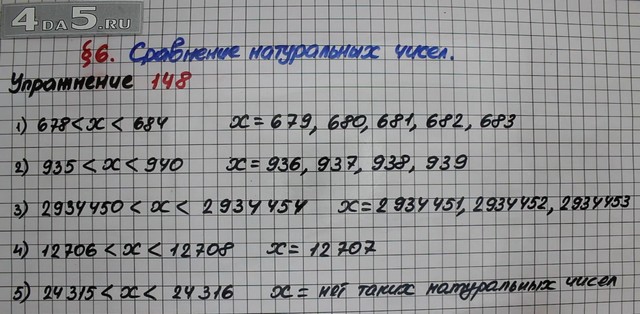 4DA5.RU
§6. Сравнение натуральных чисел.
Упражнение 148
1) 678 < x < 684 x = 679, 680, 681, 682, 683
2) 935 < x < 940 x = 936, 937, 938, 939
3) 2934450 < x < 2934454 x = 2934451, 2934452, 2934453
4) 12706 < x < 12708 x = 12707
5) 24315 < x < 24316 x = нет таких натуральных чисел